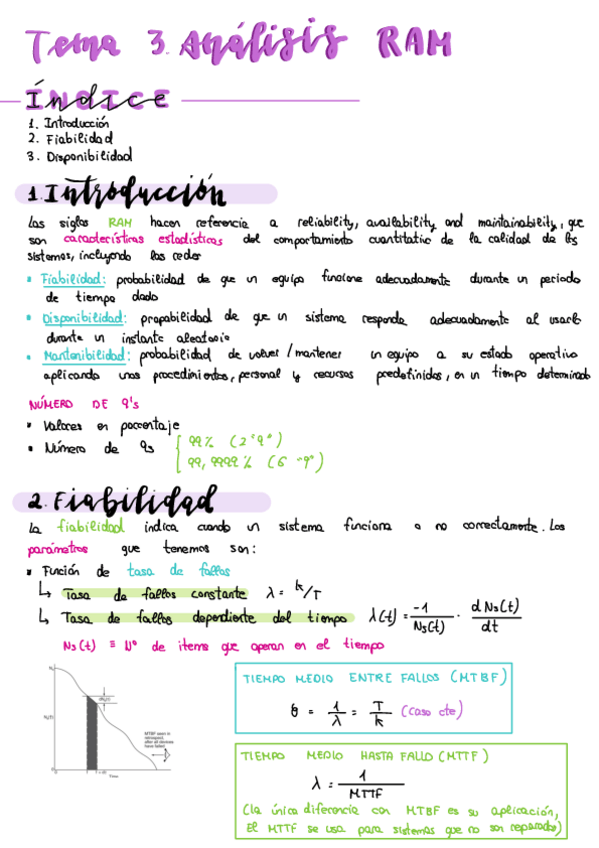 Tema 3. Análisis RAM
ÍNDICE
1. Introducción
2. Fiabilidad
3. Disponibilidad
1. Introducción
Las siglas RAM hacen referencia a reliability, availability and maintainability, que
son características estadísticas del comportamiento cuantitativo de la calidad de los
sistemas, incluyendo las redes
• Fiabilidad: probabilidad de que un equipo funcione adecuadamente durante un periodo
de tiempo dado
• Disponibilidad: propabilidad de que un sistema responda adecuadamente al usarlo
durante un instante aleatorio
• Mantenibilidad: probabilidad de volver / mantener un equipo a su estado operativo
aplicando unos procedimientos, personal y recursos predefinidos, en un tiempo determinado
NÚMERO DE 9's
• Valores en porcentaje
• Número de 9s { 99% (2 "9")
99,9999% (6 "9")
2. Fiabilidad
La fiabilidad indica cuando un sistema funciona o no correctamente. Los
parámetros que tenemos son:
• Función de tasa de fallos
↳ Tasa de fallos constante λ = k/T
↳ Tasa de fallos dependiente del tiempo λ(t) = -1/Ns(t) · dNs(t)/dt
Ns(t) ≡ Nº de items que operan en el tiempo
MTBF seen in
retrospect,
after all devices
have failed
Time
TIEMPO MEDIO ENTRE FALLOS (MTBF)
θ = 1/λ = T/k (caso cte)
TIEMPO MEDIO HASTA FALLO (MTTF)
λ = 1/MTTF
(la única diferencia con MTBF es su aplicación,
El MTTF se usa para sistemas que no son reparados)